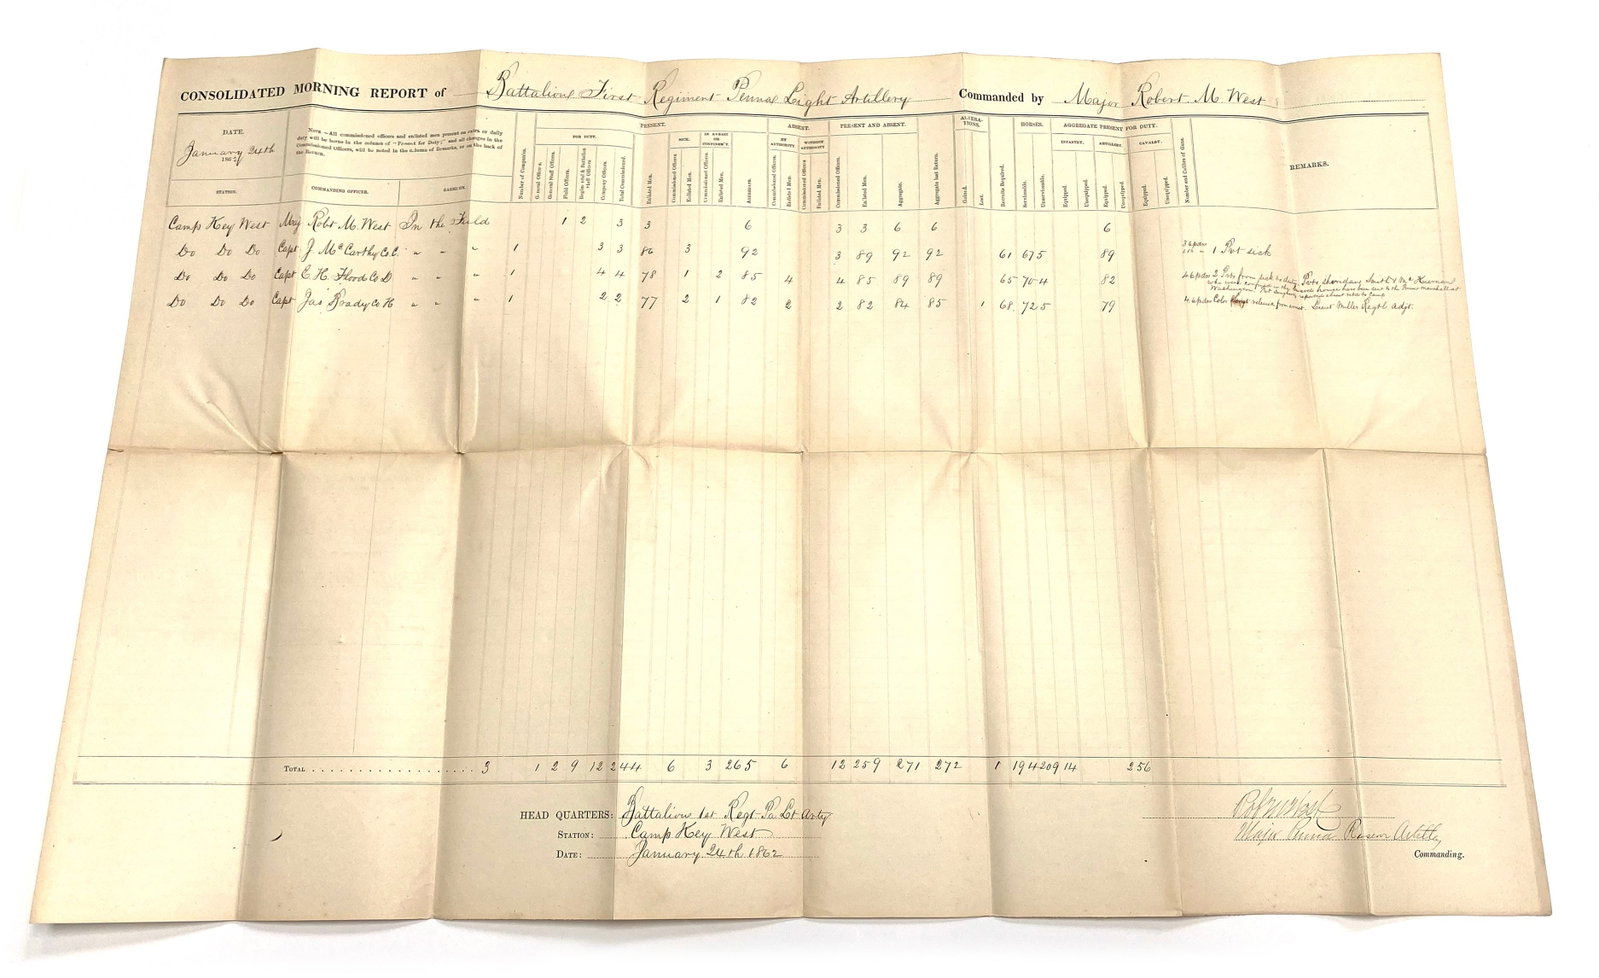 CONSOLIDATED MORNING REPORT of Battalion First Regiment Penna Light Artillery Commanded by Major Robert M. West
DATE.
January 24th
1862
NOTE.—All commissioned officers and enlisted men present on extra or daily
duty will be borne in the column of "Present for Duty;" and all changes in the
Commissioned Officers, will be noted in the column of Remarks, or on the back of
the Return.
STATION. COMMANDING OFFICER. GARRISON.
PRESENT. ABSENT. PRESENT AND ABSENT. ALTERATIONS. HORSES. AGGREGATE PRESENT FOR DUTY. REMARKS.
FOR DUTY. SICK. IN ARREST OR CONFINEM'T. BY AUTHORITY WITHOUT AUTHORITY INFANTRY. ARTILLERY. CAVALRY.
Number of Companies. General Officers. General Staff Officers. Field Officers. Regimental & Battalion Staff Officers Company Officers. Total Commissioned. Enlisted Men. Commissioned Officers Enlisted Men. Commissioned Officers Enlisted Men. Commissioned Officers. Enlisted Men. Commissioned Officers Enlisted Men. Commissioned Officers. Enlisted Men. Aggregate. Aggregate last Return. Gained. Lost. Recruits Required. Serviceable. Unserviceable. Equipped. Unequipped. Equipped. Unequipped. Equipped. Unequipped. Number and Calibre of Guns.
Camp Key West Maj Robt M. West In the Field 1 2 3 3 6 3 3 6 6 6
Do Do Do Capt J McCarthy Co C. " " " 1 3 3 86 3 92 3 89 92 92 61 67 5 89 1 Pvt sick
Do Do Do Capt E. H. Flood Co D " " " 1 4 4 78 1 2 85 4 4 85 89 89 65 70 4 82 4 6 pdrs 2 Pvts from sick to duty. Pvts Sheridan, Smith & McKiernan
who were
Washington
Do Do Do Capt Jas Brady Co H " " " 1 2 2 77 2 1 82 2 2 82 84 85 1 68 72 5 79 4 6 pdrs Color release from arrest. Lieut Miller Regtl Adjt.
TOTAL 3 1 2 9 12 244 6 3 265 6 12 259 271 272 1 194 209 14 256
HEAD QUARTERS: Battalion 1st Regt Pa Lt Arty
STATION: Camp Key West
DATE: January 24th 1862
Robt M West
Major Penna Reserve Artilly
Commanding.